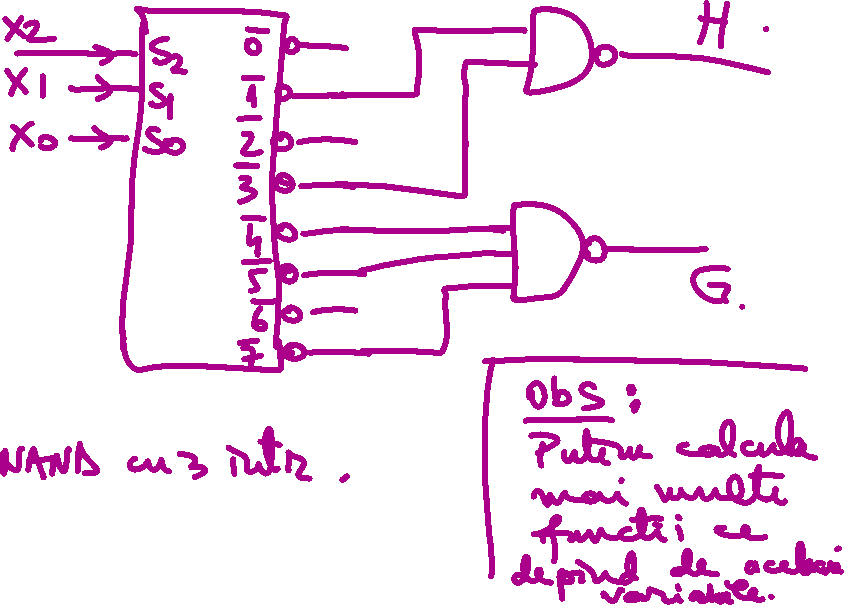 X2
X1
X0
S2
S1
S0
0
1
2
3
4
5
6
7
H.
G.
NAND cu 3 intr.
Obs:
Putem calcula
mai multe
functii ce
depind de aceleasi
variabile.